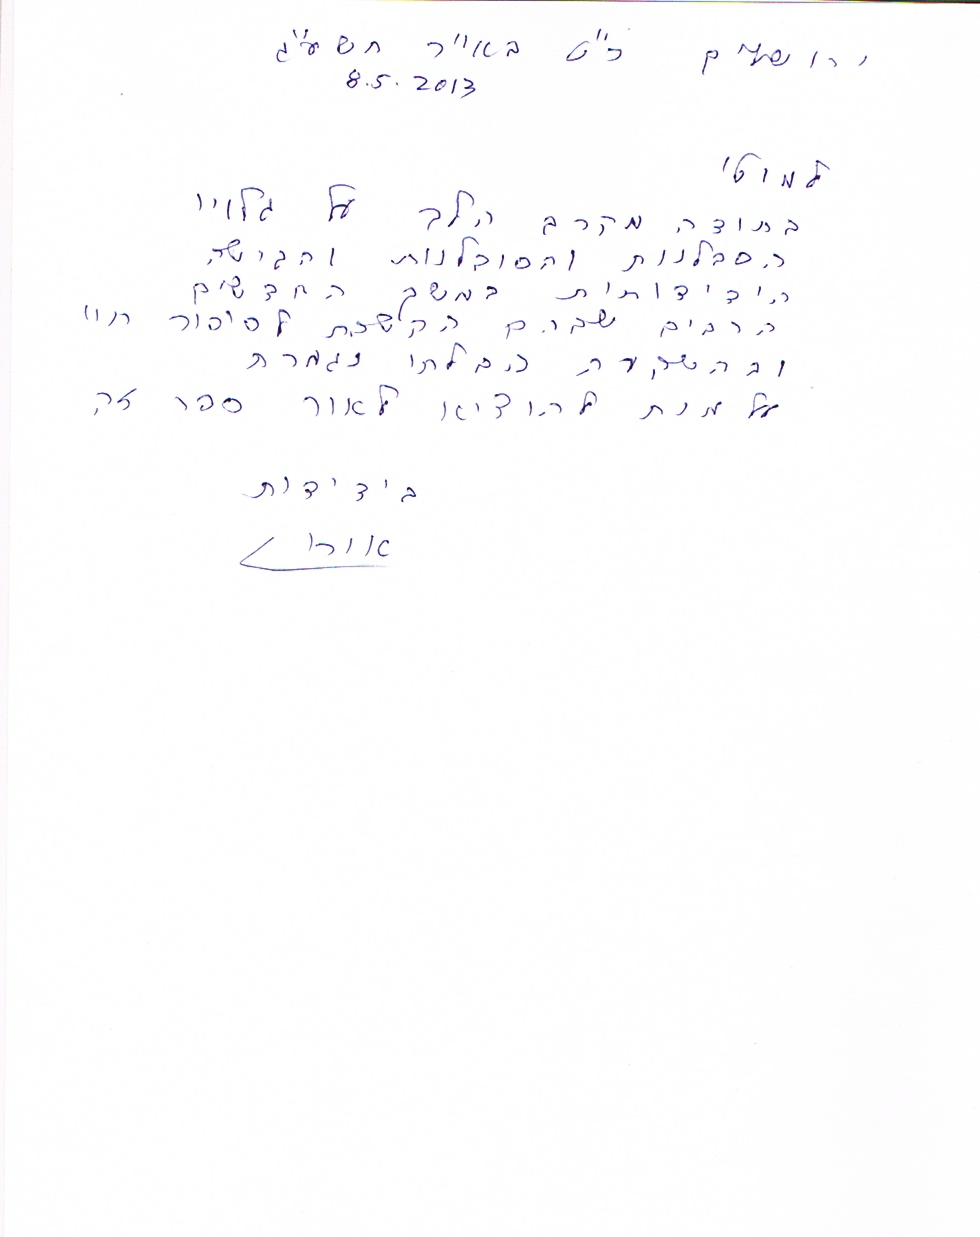 ירושלים כ"ט באייר תשע"ג
8.5.2013
למוטי
בתודה מקרב הלב על גלויי
הסבלנות והסובלנות והגישה
הידידותית במשך החדשים
הרבים שבהם הקשבת לסיפור חיי
ובהשקעה הבלתי נגמרת
על מנת להוציא לאור ספר זה
בידידות
אורי